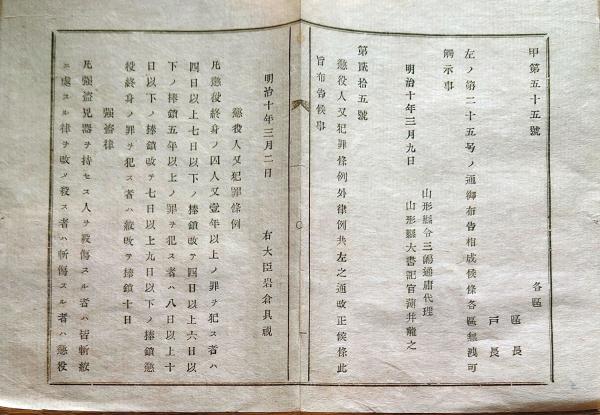 甲第五十五號
各區
區長
戸長
左ノ第二十五号ノ通御布告相成候條各區無洩可
觸示事
山形縣令三島通庸代理
明治十年三月九日
山形縣大書記官薄井龍之
第貳拾五號
懲役人又犯罪條例外律例共左之通改正候條此
旨布告候事
明治十年三月二日
右大臣岩倉具視
懲役人又犯罪條例
凡懲役終身ノ囚人又壹年以上ノ罪ヲ犯ス者ハ
四日以上七日以下ノ捧鎖改テ四日以上六日以
下ノ捧鎖五年以上ノ罪ヲ犯ス者ハ八日以上十
日以下ノ捧鎖改テ七日以上九日以下ノ捧鎖懲
役終身ノ罪ヲ犯ス者ハ縦改テ捧鎖十日
強盗律
凡強盗兇器ヲ持セス人ヲ殺傷スル者ハ皆斬絞
ニ處スル律ヲ改メ殺ス者ハ斬傷スル者ハ懲役